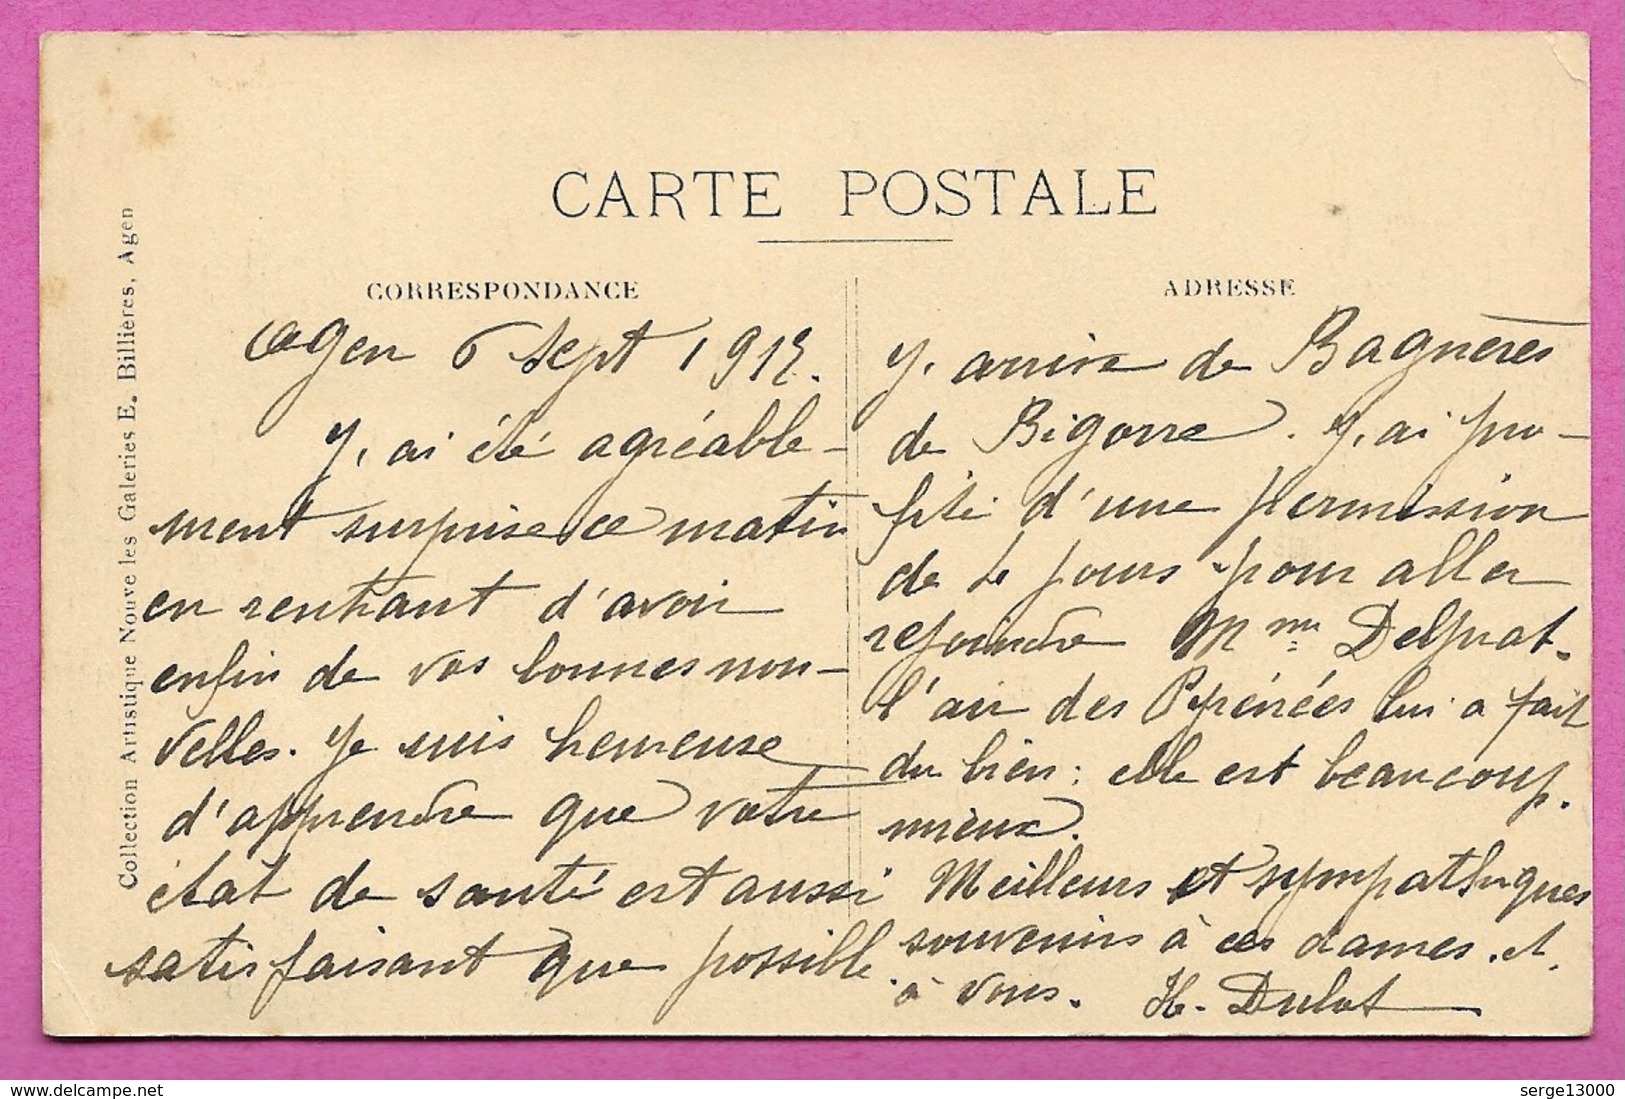 CARTE POSTALE
CORRESPONDANCE
Agen 6 Sept 1915.
J'ai été agréable-
ment surprise ce matin
en rentrant d'avoir
enfin de vos bonnes nou-
velles. Je suis heureuse
d'apprendre que votre
état de santé est aussi
satisfaisant que possible.
ADRESSE
J'arrive de Bagnères
de Bigorre. J'ai pro-
fité d'une permission
de jours pour aller
rejoindre Mme Delprat.
l'air des Pyrénées lui a fait
du bien: elle est beaucoup
mieux.
Meilleurs et sympathiques
souvenirs à ces dames et
à vous. H. Dulot
Collection Artistique Nouvelles Galeries E. Billières, Agen
serge13000